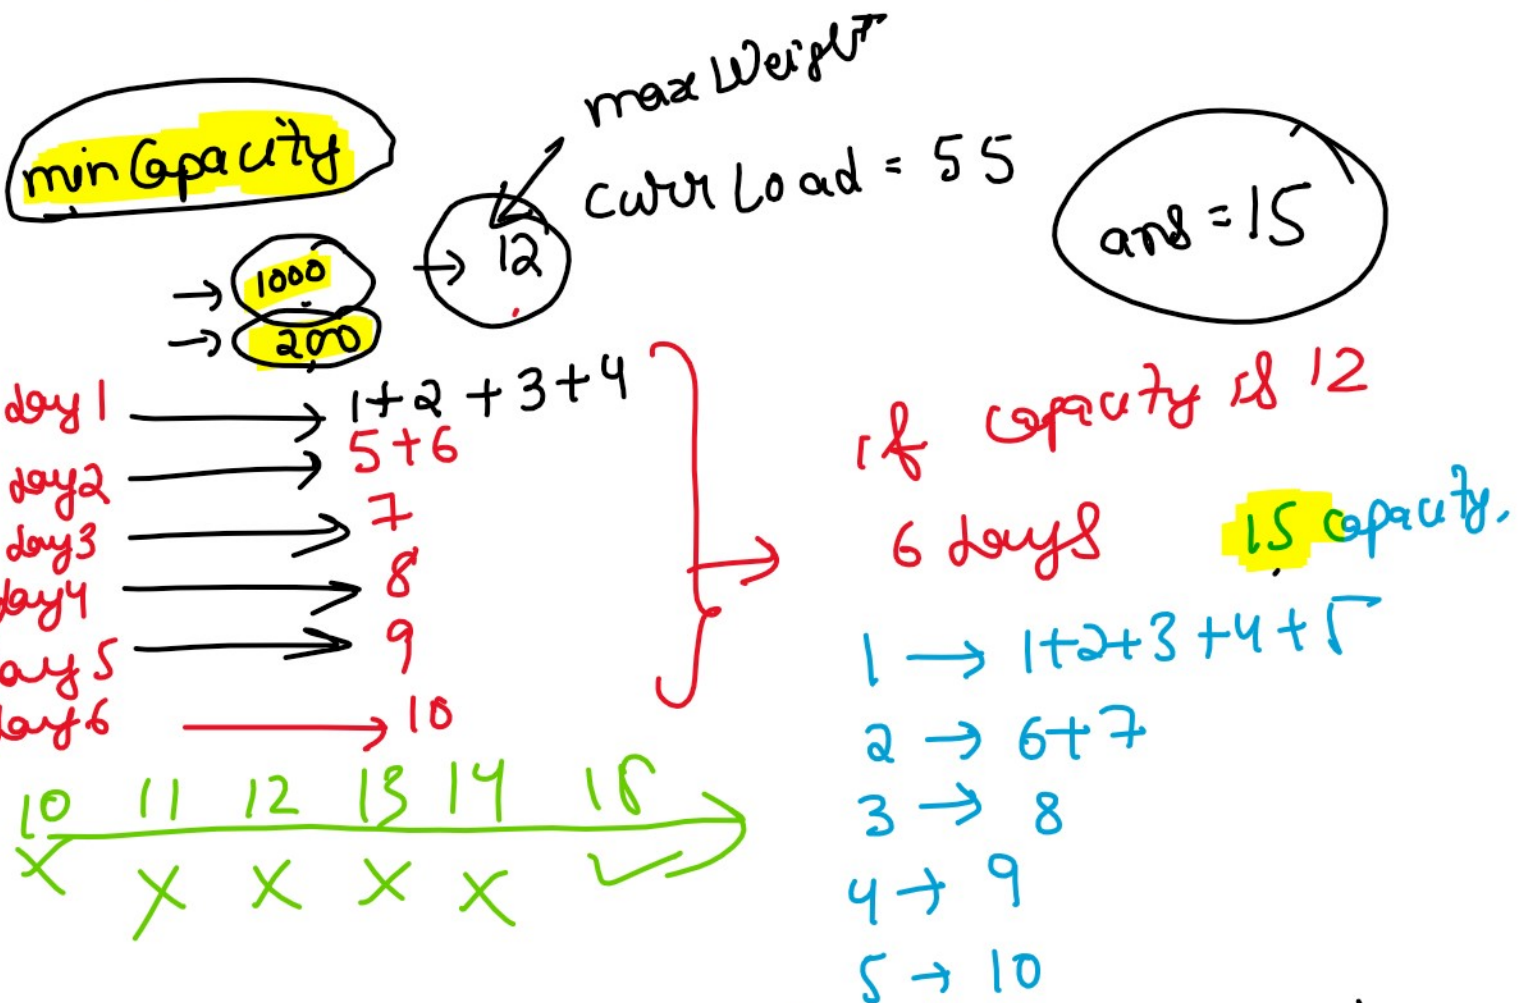 max Weight
min Capacity
curr Load = 55
ans = 15
→ 1000
→ 12
→ 200
day 1 → 1+2+3+4
day2 → 5+6
day3 → 7
day4 → 8
day5 → 9
day6 → 10
if capacity is 12
6 days
15 capacity.
1 → 1+2+3+4+5
2 → 6+7
3 → 8
4 → 9
5 → 10
10 11 12 13 14 15
X X X X X ✓